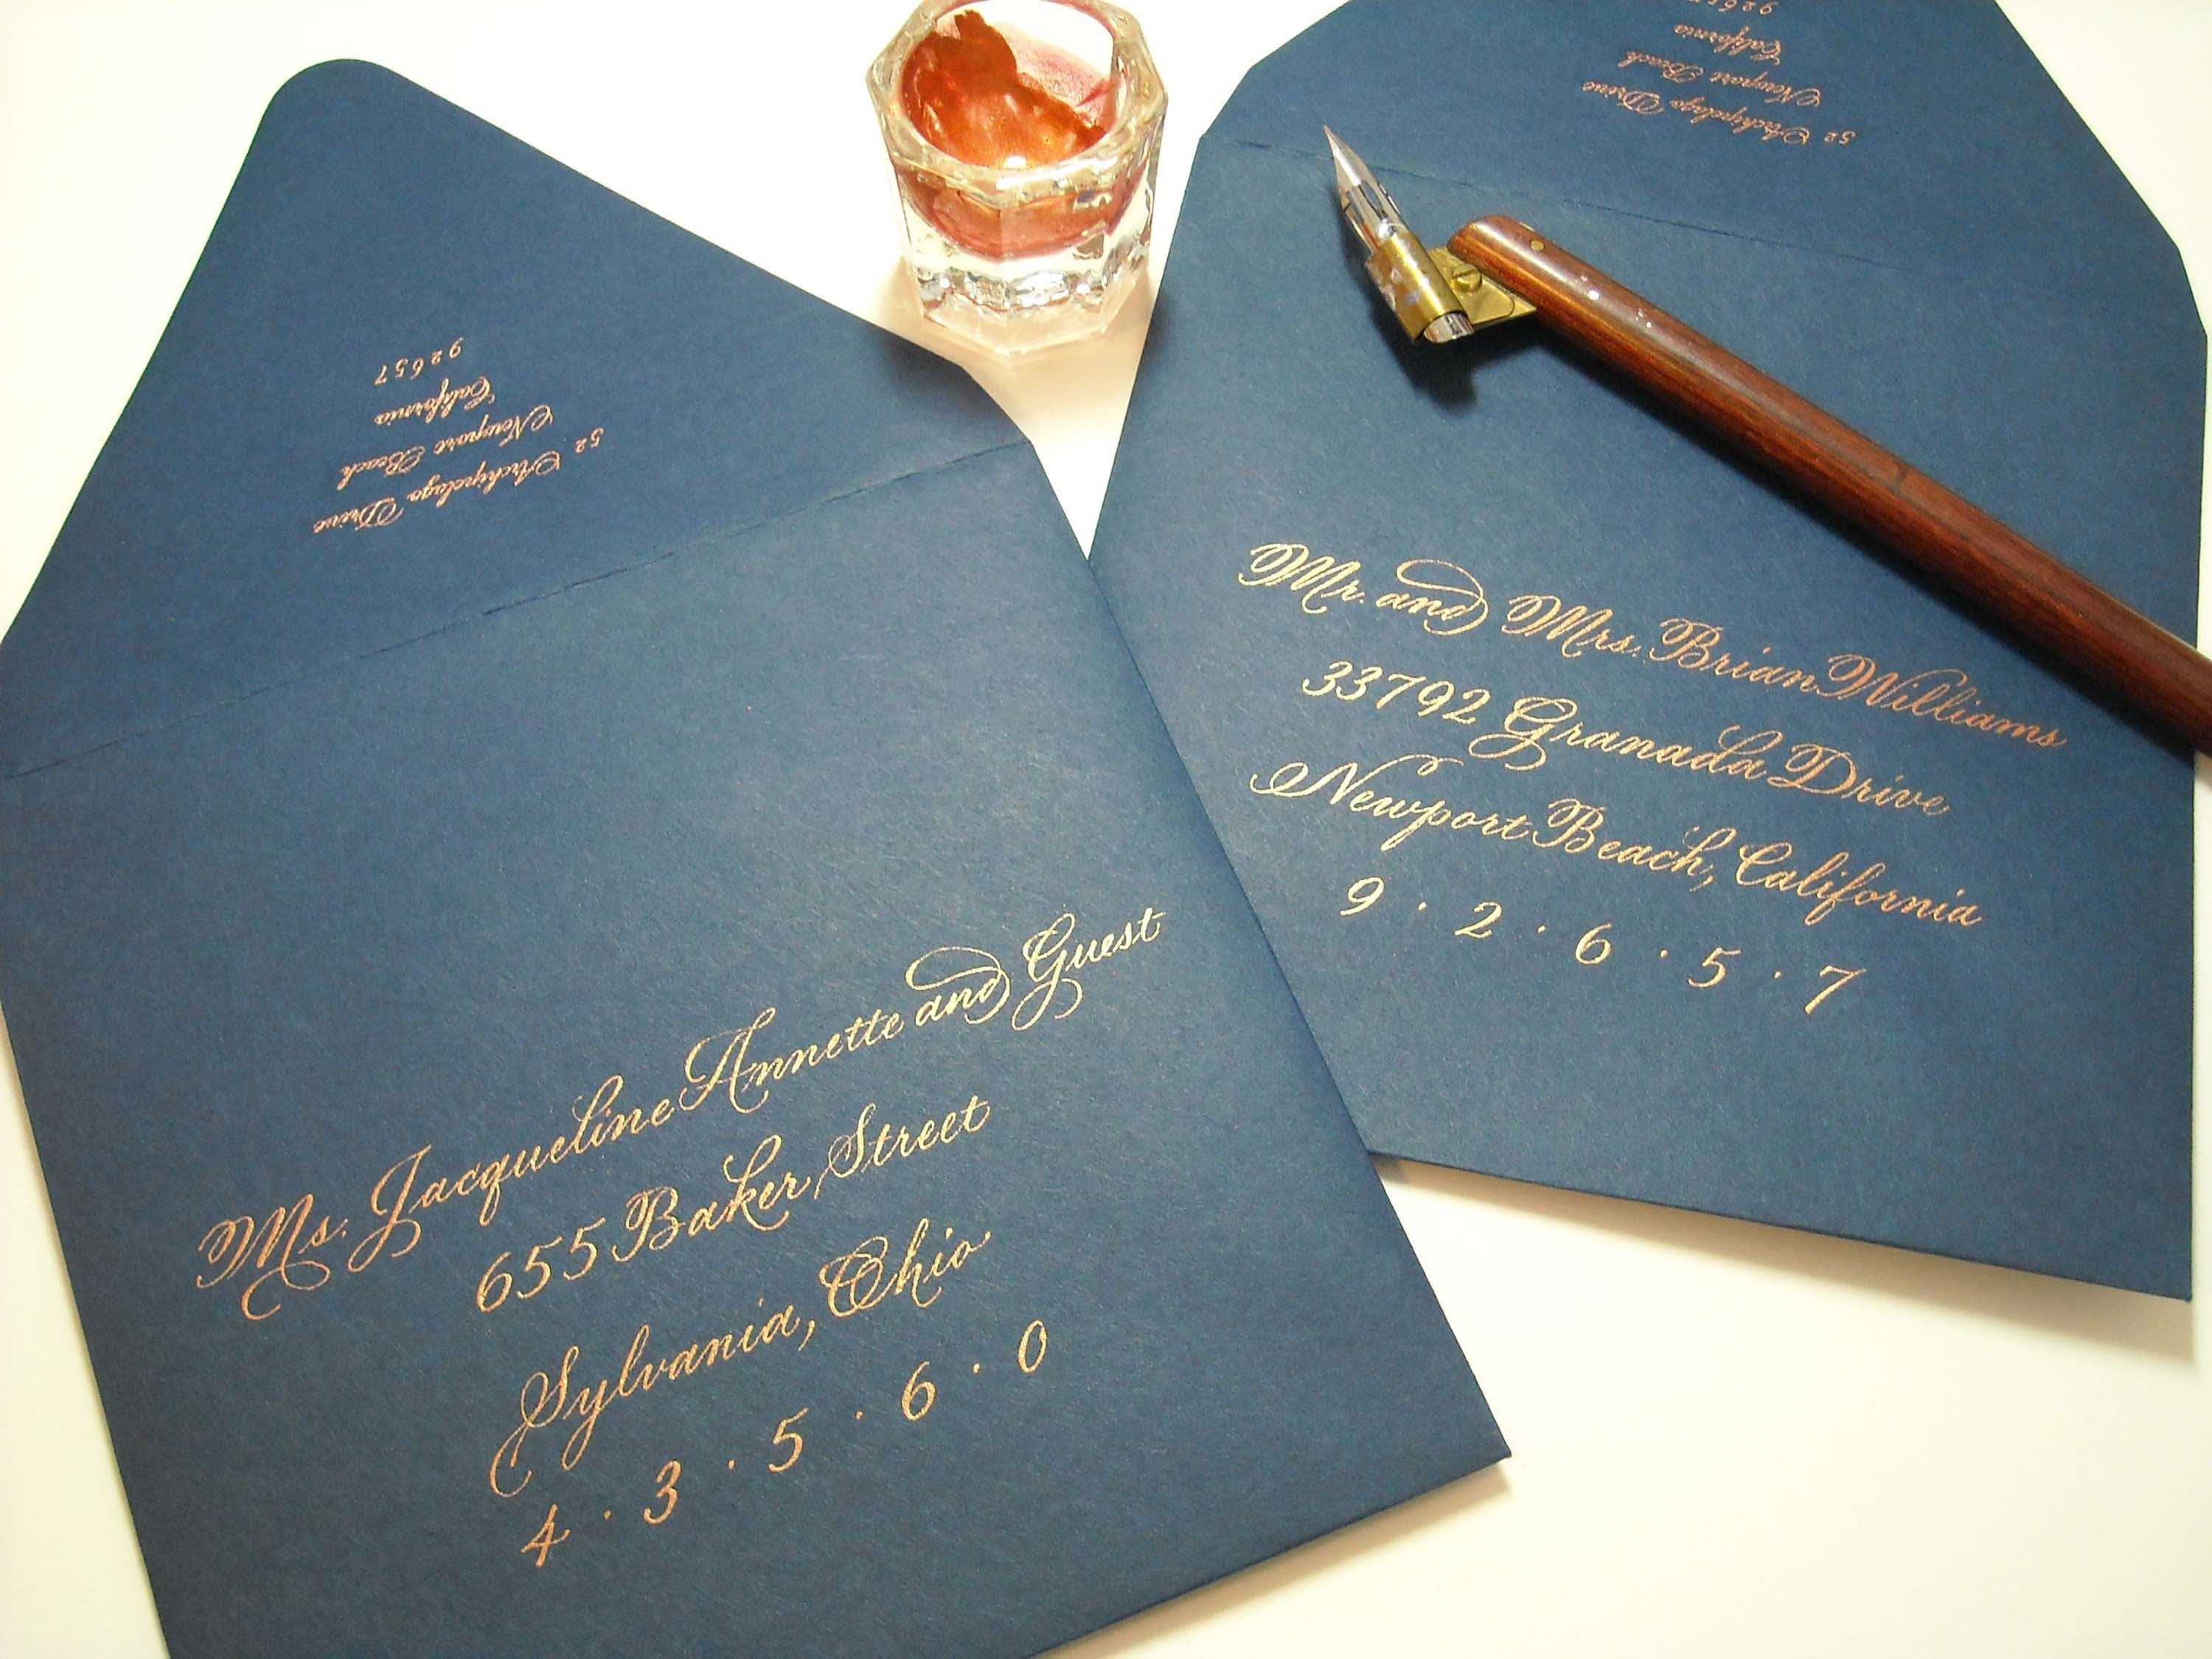 52 Archipelago Drive
Newport Beach
California
92657
Ms. Jacqueline Annette and Guest
655 Baker Street
Sylvania, Ohio
4 · 3 · 5 · 6 · 0
52 Archipelago Drive
Newport Beach
California
92657
Mr. and Mrs. Brian Williams
33792 Granada Drive
Newport Beach, California
9 · 2 · 6 · 5 · 7